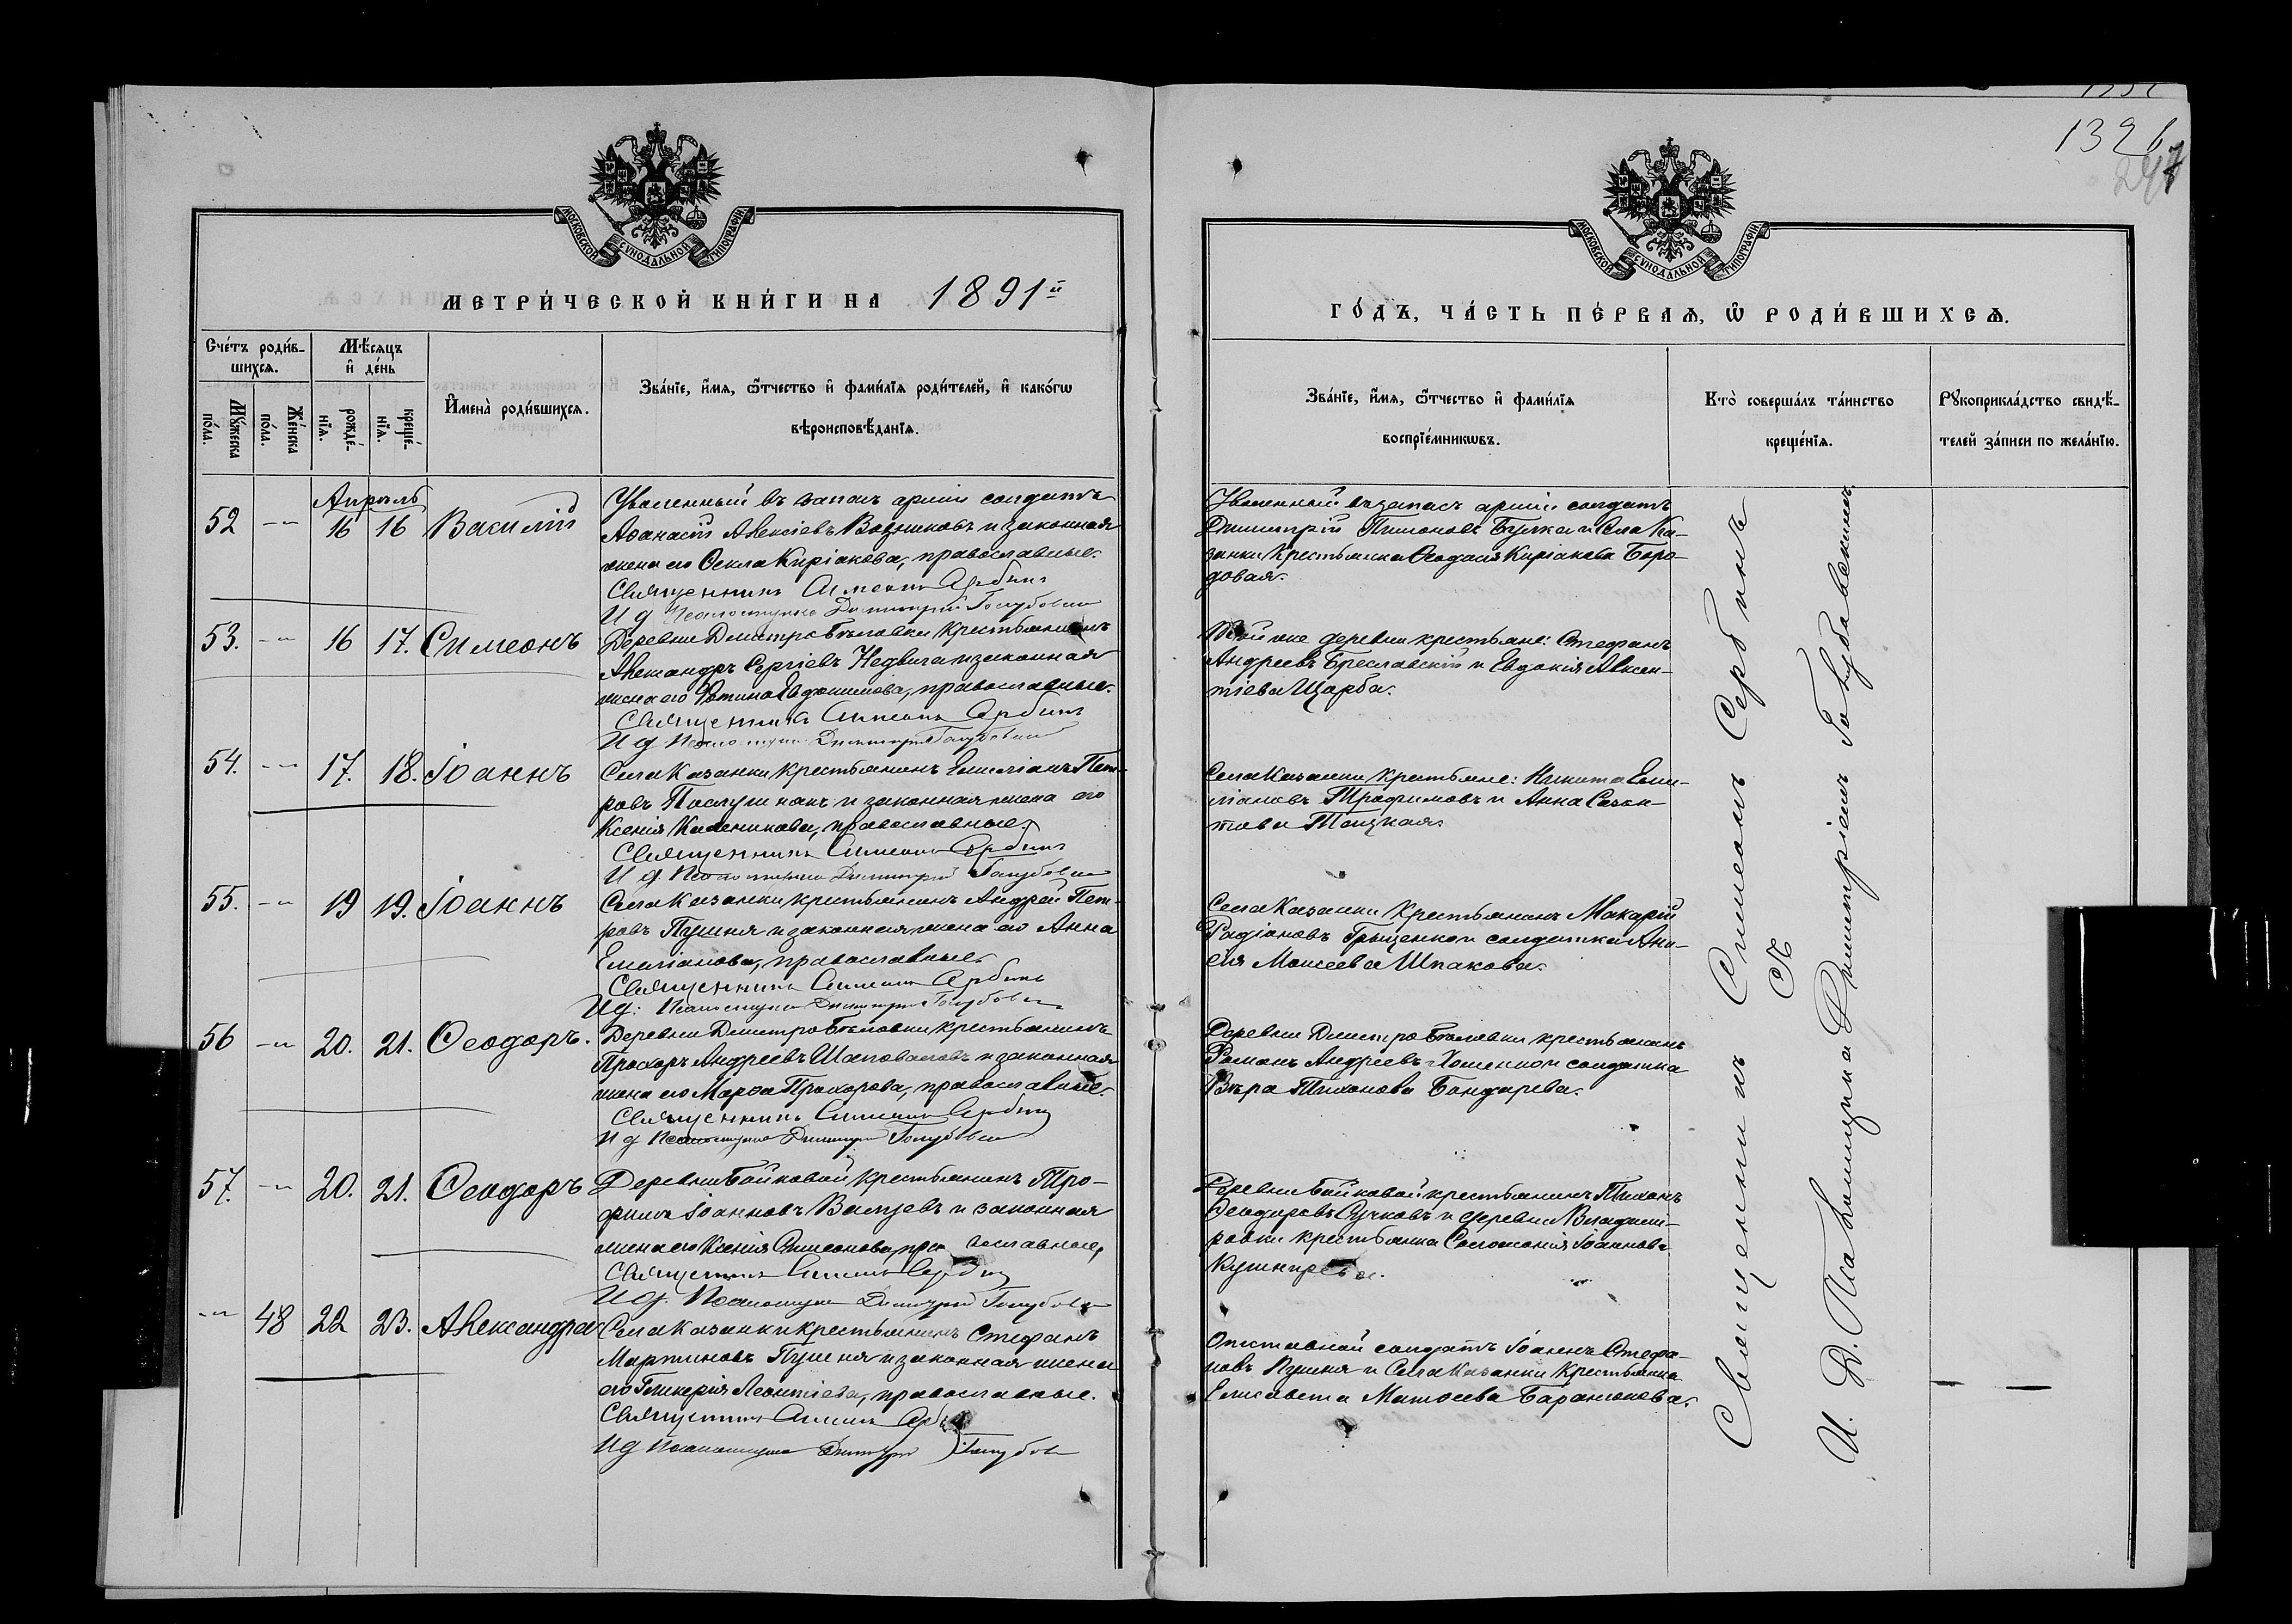 1326
МОСКОВСКОЙ СѴНОДАЛЬНОЙ ТИПОГРАФІИ
МЕТРИ́ЧЕСКОЙ КНИ́ГИ НА 1891й
Сче́тъ роди́в-
шихсѧ.
Мꙋ́жеска
по́ла.
Же́нска
по́ла.
Мѣ́сѧцъ
и҆ де́нь
рожде́-
нїѧ.
креще́-
нїѧ.
И҆мена̀ роди́вшихсѧ.
Зва́нїе, и҆́мѧ, ѻ҆́тчество и҆ фами́лїѧ роди́телей, и҆ како́гѡ
вѣроисповѣ́данїѧ.
Апрѣль
52 -"- 16 16 Василій
Уволенный въ запасъ арміи солдатъ
Аѳанасій Алексіевъ Водниковъ и законная
жена его Ѳекла Киріакова, православные.
Священникъ Симеонъ Сербинъ
И д Псаломщика Димитрій Голубовскій
53. -"- 16 17. Симеонъ
Деревни Дмитро Бѣловки крестьянинъ
Александръ Сергіевъ Недвига и законная
жена его Фотина Евдокимова, православные.
Священникъ Симеонъ Сербинъ
И д Псаломщика Димитрій Голубовскій
54. -"- 17. 18. Іоаннъ
Села Казанки крестьянинъ Емиліанъ Пет-
ровъ Послушнакъ и законная жена его
Ксенія Каленикова, православные.
Священникъ Симеонъ Сербинъ
И д. Псаломщика Димитрій Голубовскій
55. -"- 19 19. Іоаннъ
Села Казанки крестьянинъ Андрей Пет-
ровъ Пушня и законная жена его Анна
Емиліанова, православные
Священникъ Симеонъ Сербинъ
И д: Псаломщика Димитрій Голубовскій
56 -"- 20. 21. Ѳеодоръ.
Деревни Дмитро Бѣловки крестьянинъ
Прохоръ Андреевъ Шаповаловъ и законная
жена его Марѳа Прохорова, православные.
Священникъ Симеонъ Сербинъ
И д Псаломщика Димитрій Голубовскій
57. -"- 20. 21. Ѳеодоръ
Деревни Бойковой крестьянинъ Тро-
фимъ Іоанновъ Валуевъ и законная
жена его Ксенія Симеонова, православные,
Священникъ Симеонъ Сербинъ
И д. Псаломщика Димитрій Голубовскій
-"- 48 22 23. Александра
Села Казанки крестьянинъ Стефанъ
Мартиновъ Пушня и законная жена
его Гликерія Леонтіева, православные.
Священникъ Симеонъ Сербинъ
И д Псаломщика Димитрій Голубовскій
МОСКОВСКОЙ СѴНОДАЛЬНОЙ ТИПОГРАФІИ
ГО́ДЪ, ЧА́СТЬ ПЕ́РВАѦ, Ѡ҆ РОДИ́ВШИХСѦ.
Зва́нїе, и҆́мѧ, ѻ҆́тчество и҆ фами́лїѧ
воспрїе́мникѡвъ.
Кто̀ соверша́лъ та́инство
креще́нїѧ.
Рꙋкоприкла́дство свидѣ́-
телей за́писи по жела́нїю.
Уволенный въ запасъ арміи солдатъ
Димитрій Тимоновъ Булка и Села Ка-
занки крестьянка Ѳеодосія Киріакова Боро-
довая.
Той же деревни крестьяне: Стефанъ
Андреевъ Бреславскій и Евдокія Авксен-
тіева Щарба.
Села Казанки крестьяне: Никита Еми-
ліановъ Трофимовъ и Анна Созон-
това Тоцкая.
Села Казанки крестьянинъ Макарій
Радіоновъ Грыценко и солдатка Ани-
сія Моисеева Шпакова.
Деревни Дмитро Бѣловки крестьянинъ
Романъ Андреевъ Хоменко и солдатка
Вѣра Тихонова Бондарева.
Деревни Бойковой крестьянинъ Тихонъ
Ѳеодоровъ Сучковъ и деревни Владими-
ровки крестьянка Соломонія Іоаннова
Кушнирева.
Отставной солдатъ Іоаннъ Стефа-
новъ Пушня и Села Казанки крестьянка
Елисавета Матѳеева Барансюкова.
Священникъ Симеонъ Сербинъ
съ
И. Д. Псаломщика Димитріемъ Голубовскимъ.